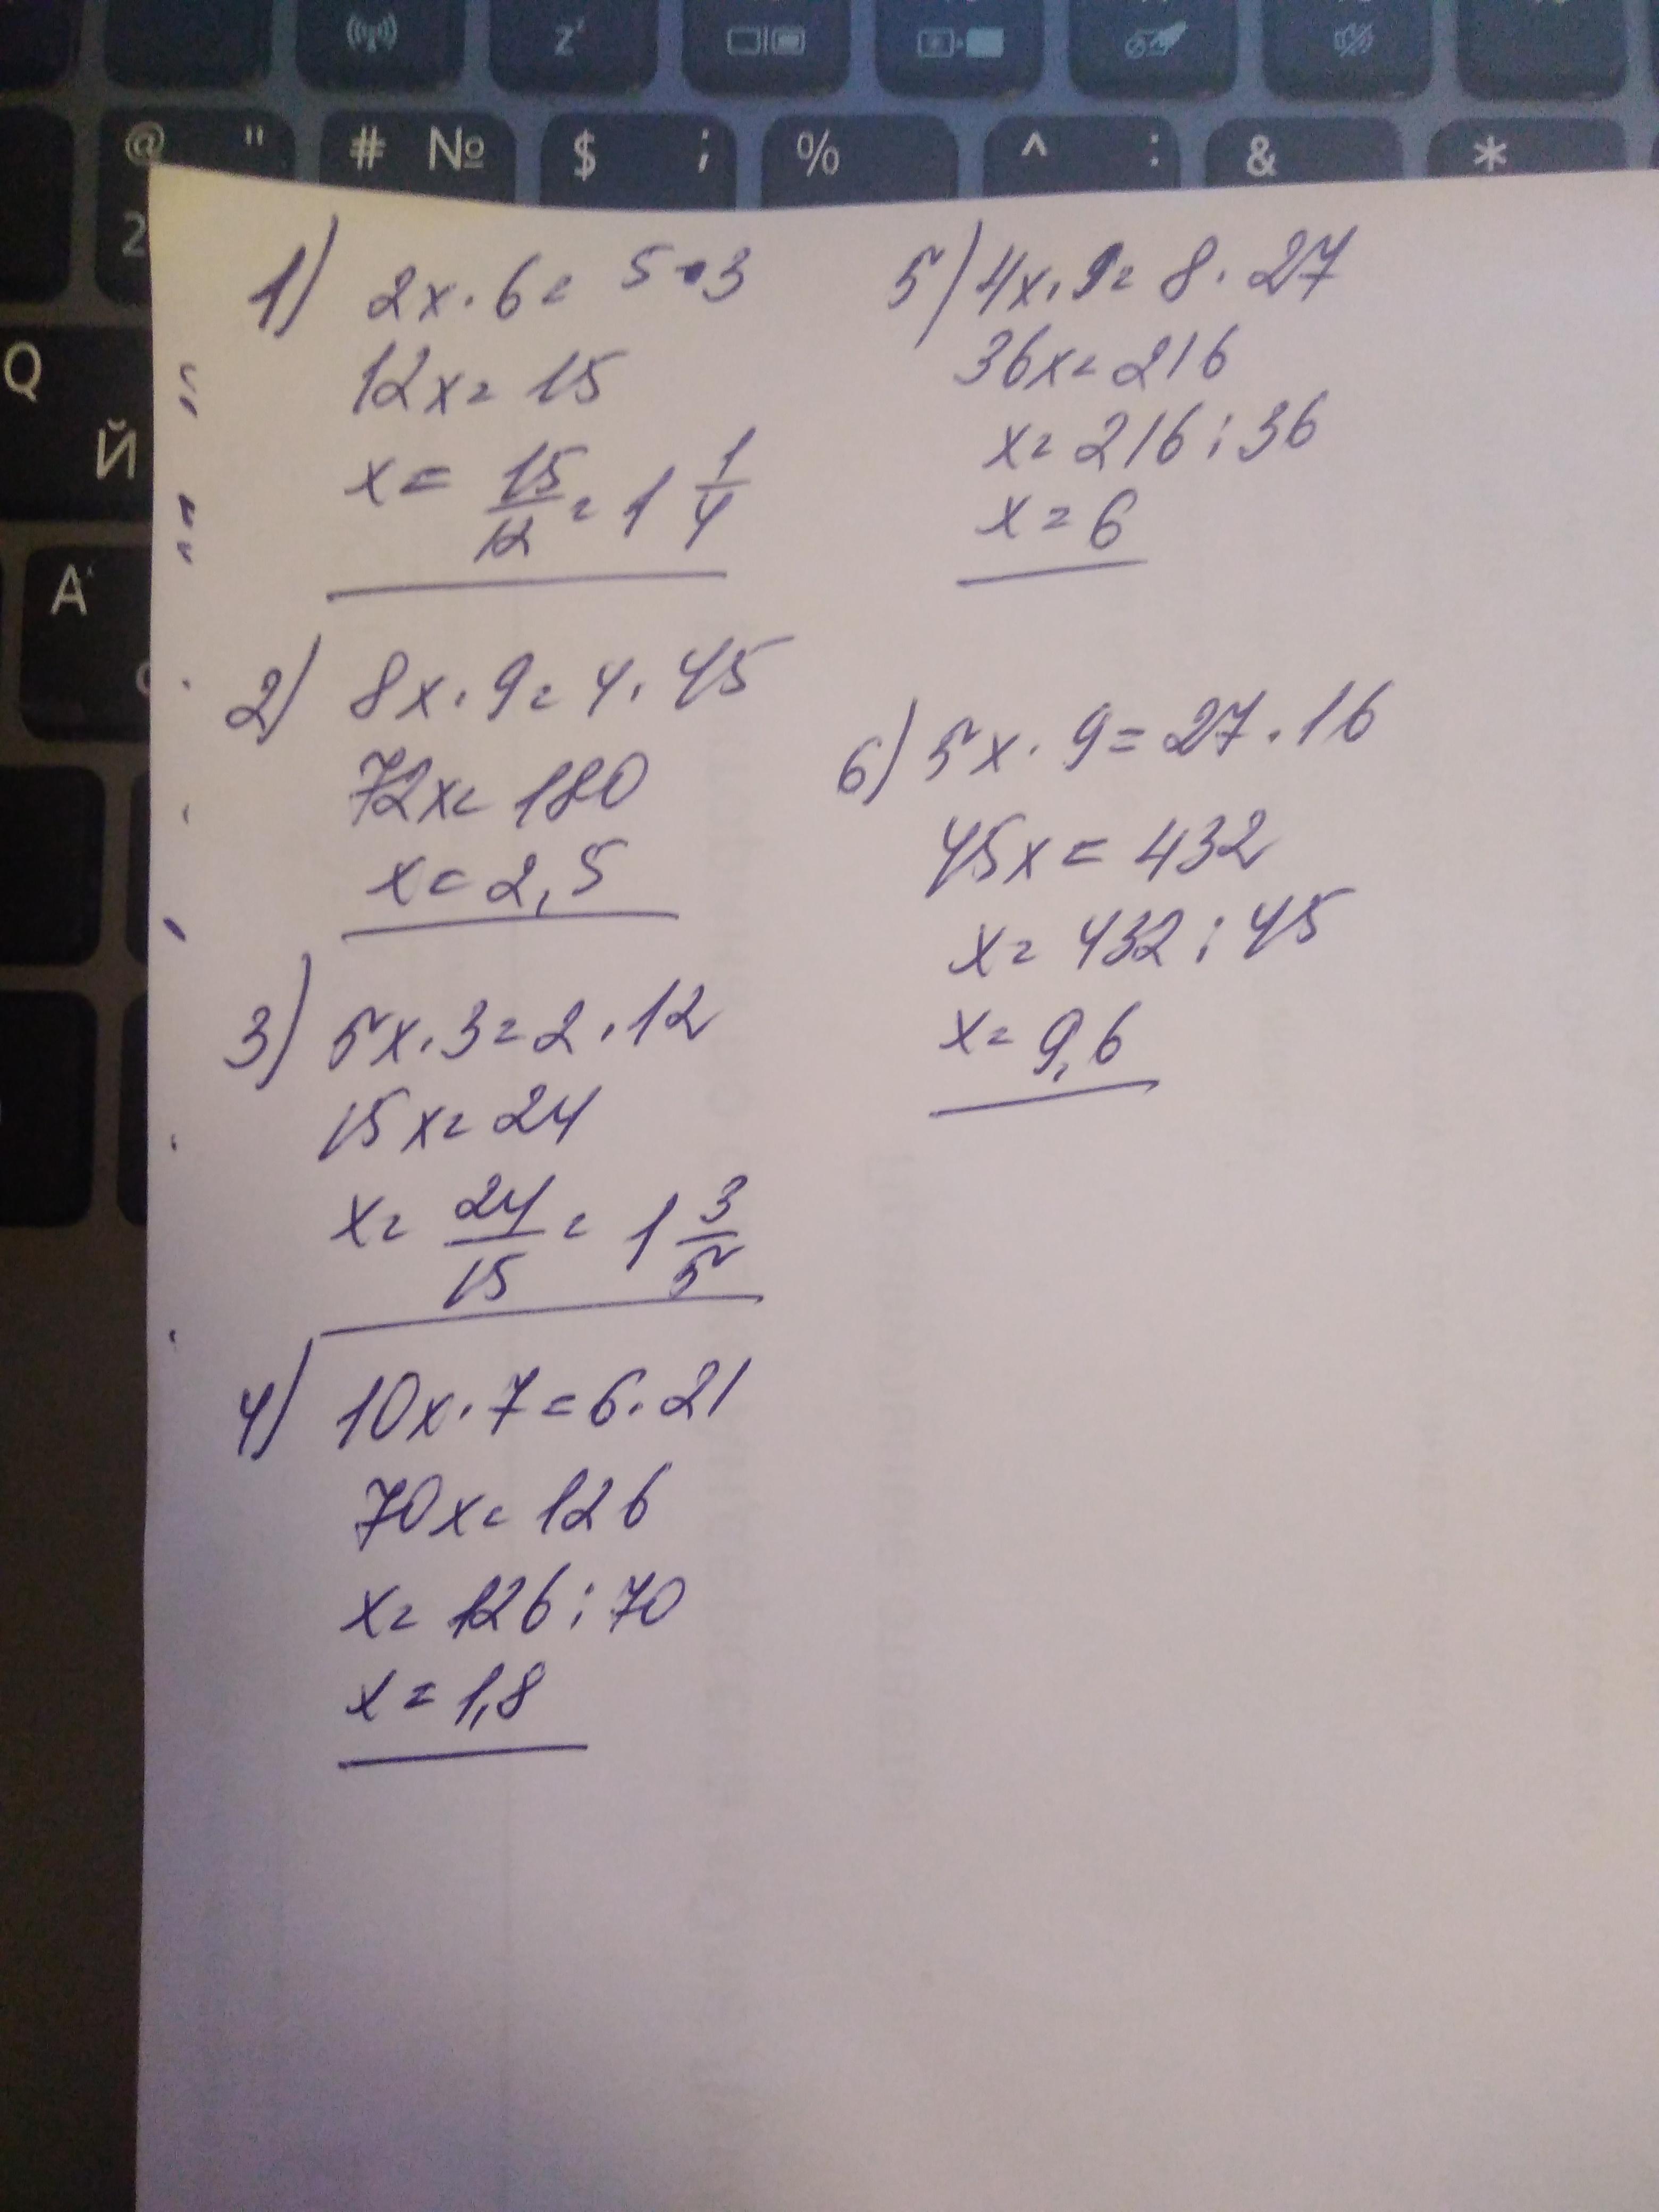 z'
@ " # № $ ; % ^ : & *
2
Q
Й
A
1) 2x·6=5·3
12x=15
x=15/12=1 1/4
2) 8x·9=4·45
72x=180
x=2,5
3) 5x·3=2·12
15x=24
x=24/15=1 3/5
4) 10x·7=6·21
70x=126
x=126:70
x=1,8
5) 4x·9=8·27
36x=216
x=216:36
x=6
6) 5x·9=27·16
45x=432
x=432:45
x=9,6